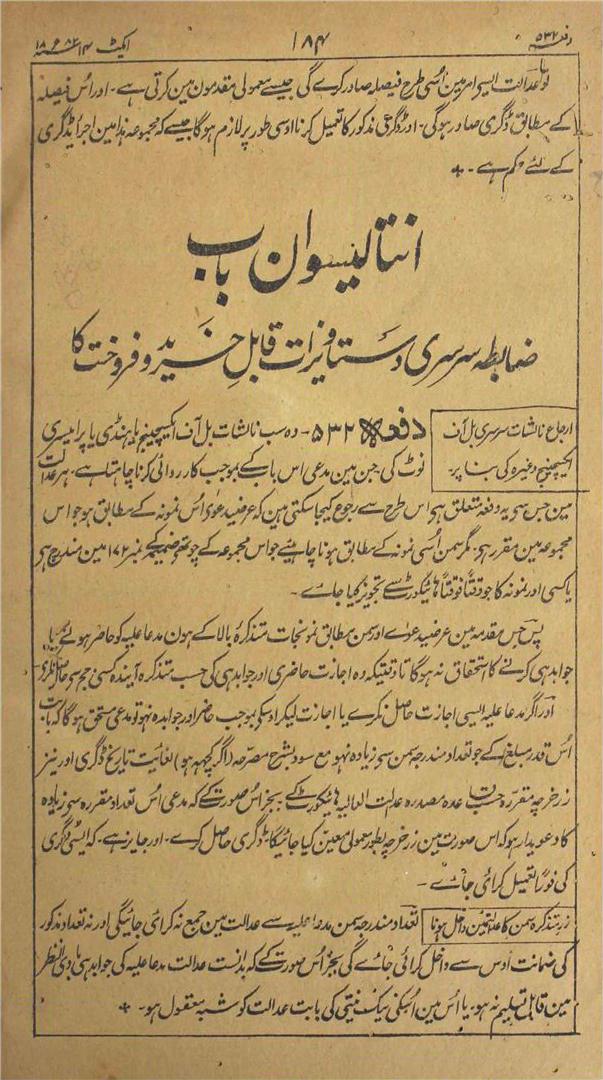 دفعہ ۵۳۲
۱۸۴
ایکٹ ۱۴ سنہ ۱۸۸۲ء
تو عدالت ایسی امر مین اُسی طرح فیصلہ صادر کرے گی جیسے معمولی مقدمون مین کرتی ہے ۔ اور اُس فیصلہ
کے مطابق ڈگری صادر ہوگی ۔ اور ڈگری مذکور کا تعمیل کرنا اوسی طور پر لازم ہوگا جیسے کہ مجموعہ ہذا مین اجراے ڈگری
کے لئے حکم ہے ۔ +
انتالیسوان باب
ضابطہ سرسری دستاویزات قابلِ خرید و فروخت کا
ارجاع نالشات سرسری بل آف
اکسچینج وغیرہ کی بنا پر ۔
دفعہ ۵۳۲ ۔ وہ سب نالشات بل آف اکسچینج یا ہنڈی یا پرامیسری
نوٹ کی جن مین مدعی اس باب کے بموجب کارروائی کرنا چاہتا ہے ۔ ہر عدالت
مین جس سے یہ دفعہ تعلق ہی اس طرح سے رجوع کیجا سکتی ہین کہ عرضیدعوی اُس نمونہ کے مطابق ہو جو اس
مجموعہ مین مقرر ہی ۔ مگر سمن اُسی نمونہ کے مطابق ہونا چاہئیے جو اس مجموعہ کے چوتھے ضمیمے کے نمبر ۱۷۲ مین مندرج ہی
یا کسی اور نمونہ کا جو وقتاً فوقتاً ہائیکورٹ سے تجویز کیا جاے ۔
پس جس مقدمہ مین عرضیدعوے اور سمن مطابق نمونجات متذکرۂ بالا کے ہون مدعاعلیہ کو حاضر ہونے یا
جوابدہی کرنے کا استحقاق نہ ہوگا تاوقتیکہ وہ اجازت حاضری اور جوابدہی کی حسب متذکرہ آیندہ کسی جج سی حاصل نکرے
اور اگر مدعاعلیہ ایسی اجازت حاصل نکرے یا اجازت لیکر اوسکے بموجب حاضر اور جوابدہ نہو تو مدعی مستحق ہوگا کہ بابت
اُس قدر مبلغ کے جو تعداد مندرجہ سمن سی زیادہ نہو مع سود بشرح مصرحہ (اگر کچھہ ہو) لغایت تاریخ ڈگری اور نیز
زر خرچہ مقررہ حسب قاعدہ مصدرہ عدالت العالیہ ہائیکورٹ کے بجز اُس صورت کے کہ مدعی اُس تعداد مقررہ سی زیادہ
کا دعویدار ہو کہ اس صورت مین زر خرچہ بطور معمولی معین کیا جائیگا ۔ ڈگری حاصل کرے ۔ اور جایز ہے ۔ کہ ایسی ڈگری
کی فوراً تعمیل کرائی جاے ۔
زر متذکرہ سمن کا عدالت مین داخل ہونا
تعداد مندرجہ سمن مدعاعلیہ سے عدالت مین جمع نہ کرائی جائیگی اور نہ تعداد مذکور
کی ضمانت اُوس سے داخل کرائی جاے گی بجز اُس صورت کے کہ بدانست عدالت مدعاعلیہ کی جوابدہی بادی النظر
مین قابل تسلیم نہ ہو ۔ یا اُس مین اُسکی نیک نیتی کی بابت عدالت کو شبہ معقول ہو ۔ +